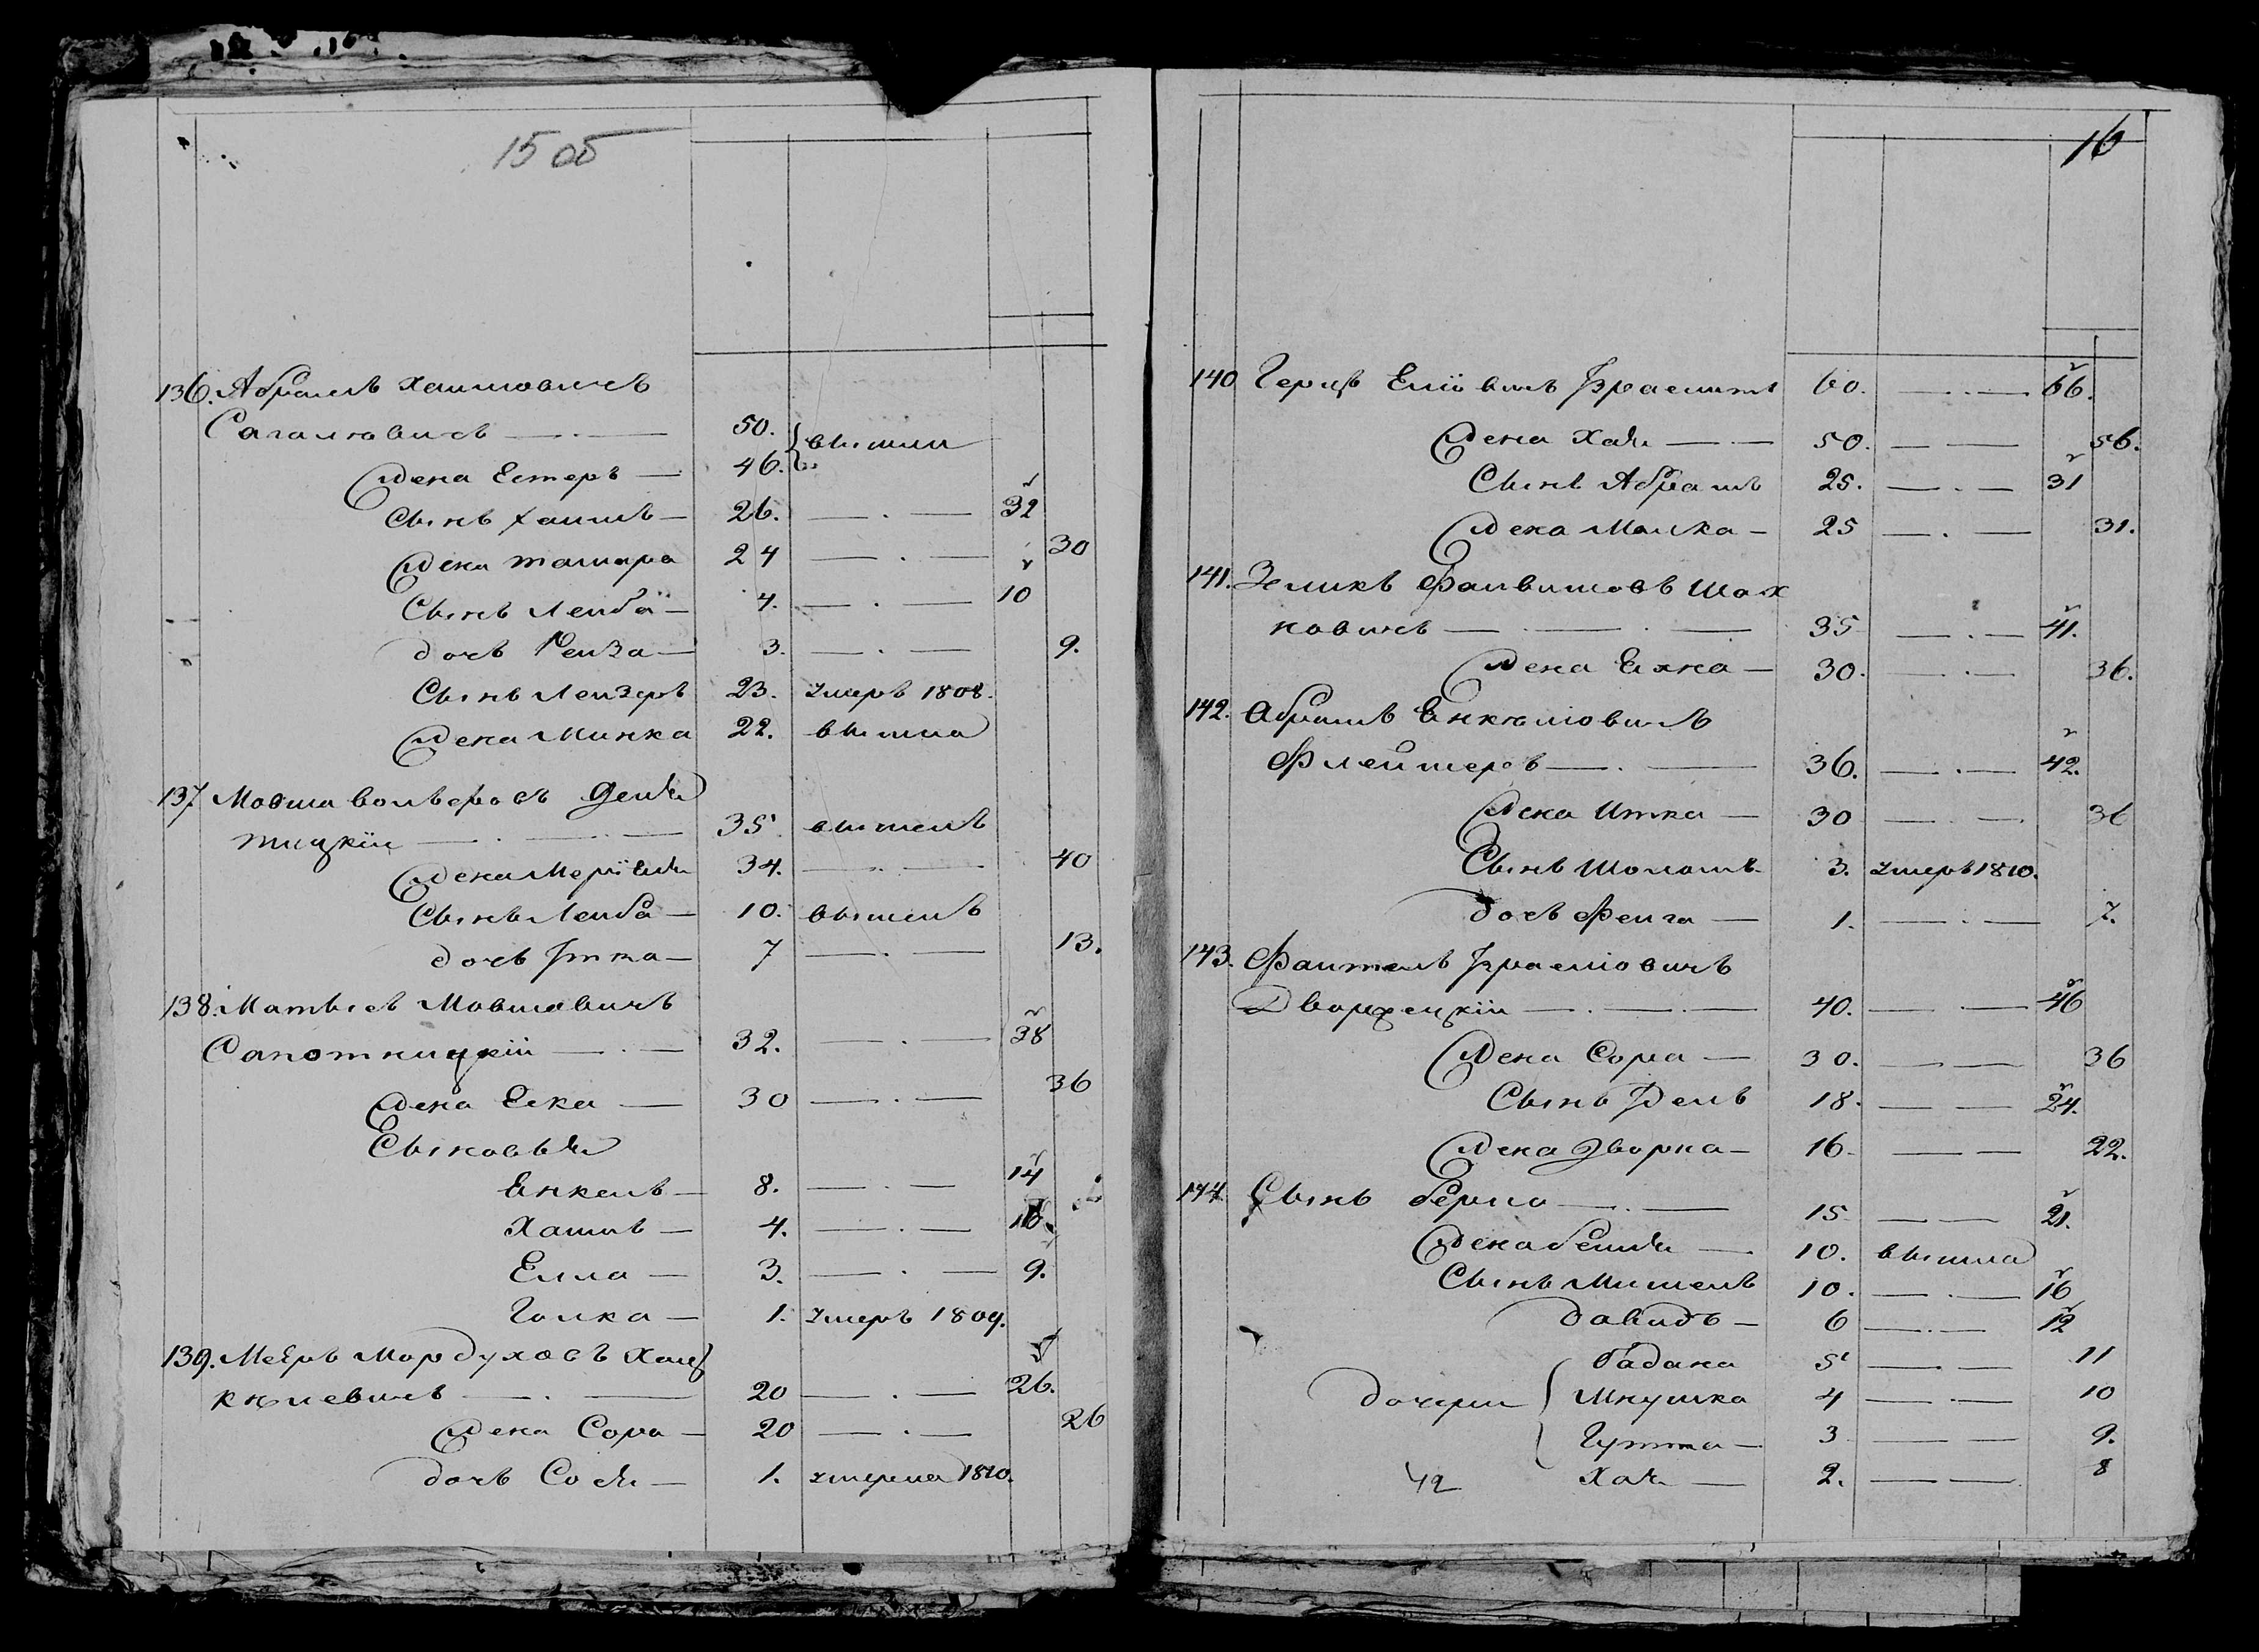 15 об
136. Абрамъ Хаимовичъ
Сагаловичъ — . — 50. вышли
Жена Естеръ — 46.
Сынъ Хаимъ — 26. — . — 32
Жена Тамара 24 — . — 30
Сынъ Лейба — 4. — . — 10
дочь Рейза — 3. — . — 9.
Сынъ Лейзеръ 23. умеръ 1808.
Жена Минка 22. вышла
137 Мовша Вольфовъ
тицкій — . — 35. вышелъ
Жена 34. — . — 40
Сынъ Лейба — 10. вышелъ
дочь Iтка — 7 — . — 13.
138. Матысъ Мовшовичъ
Сапотницкій — . — 32. — . — 38
Жена Еска — 30 — . — 36
Сыновья
Енкель — 8. — . — 14
Хаимъ — 4. — . — 10.
Елла — 3. — . — 9.
Голка — 1. умеръ 1809.
139. Меєръ Мордуховъ
келевичъ — . — 20 — . — 26.
Жена Сора — 20 — . — 26
дочь Сося — 1. умерла 1810.
16
140 Герцъ Еліовичъ Iзраелитъ 60. — . — 66.
Жена Хая — . — 50. — — 56.
Сынъ Абрамъ 25. — . — 31
Жена Малка — 25 — . — 31.
141. Зеликъ Файвишовъ Шах
новичъ — . — . — 35 — . — 41.
Жена Ехна — 30. — . — 36.
142. Абрамъ Енкелювичъ
Флейшеръ — . — 36. — . — 42.
Жена Итка — 30 — . — 36
Сынъ Шоломъ — 3. умеръ 1810.
дочь Фейга — 1. — . — 7.
143. Файтель Iзраеліовичъ
Дворжецкій — . — . — 40. — — 46
Жена Сора — 30. — — 36
Сынъ Iдель 18. — — 24.
Жена Дворка — 16. — — 22.
144. Сынъ Берко — . — 15 — — 21.
Жена Бейля — 10. вышла
Сынъ Мишель 10. — . — 16
Давидъ — 6 — . — 12
дочери
Бадана 5 — . — 11
Мнушка 4 — . — 10
Гутта — 3 — — 9.
Хая — 2. — — 8
42